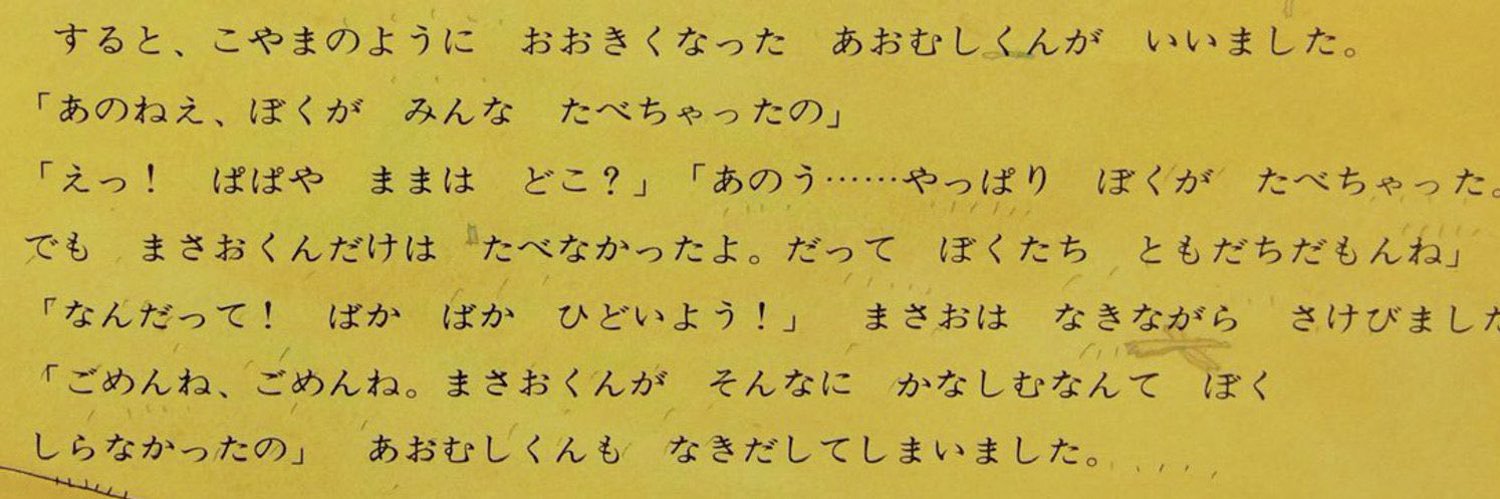 すると、こやまのように　おおきくなった　あおむしくんが　いいました。
「あのねえ、ぼくが　みんな　たべちゃったの」
「えっ！　ぱぱや　ままは　どこ？」「あのう……やっぱり　ぼくが　たべちゃった。
でも　まさおくんだけは　たべなかったよ。だって　ぼくたち　ともだちだもんね」
「なんだって！　ばか　ばか　ひどいよう！」　まさおは　なきながら　さけびました
「ごめんね、ごめんね。まさおくんが　そんなに　かなしむなんて　ぼく
しらなかったの」　あおむしくんも　なきだしてしまいました。